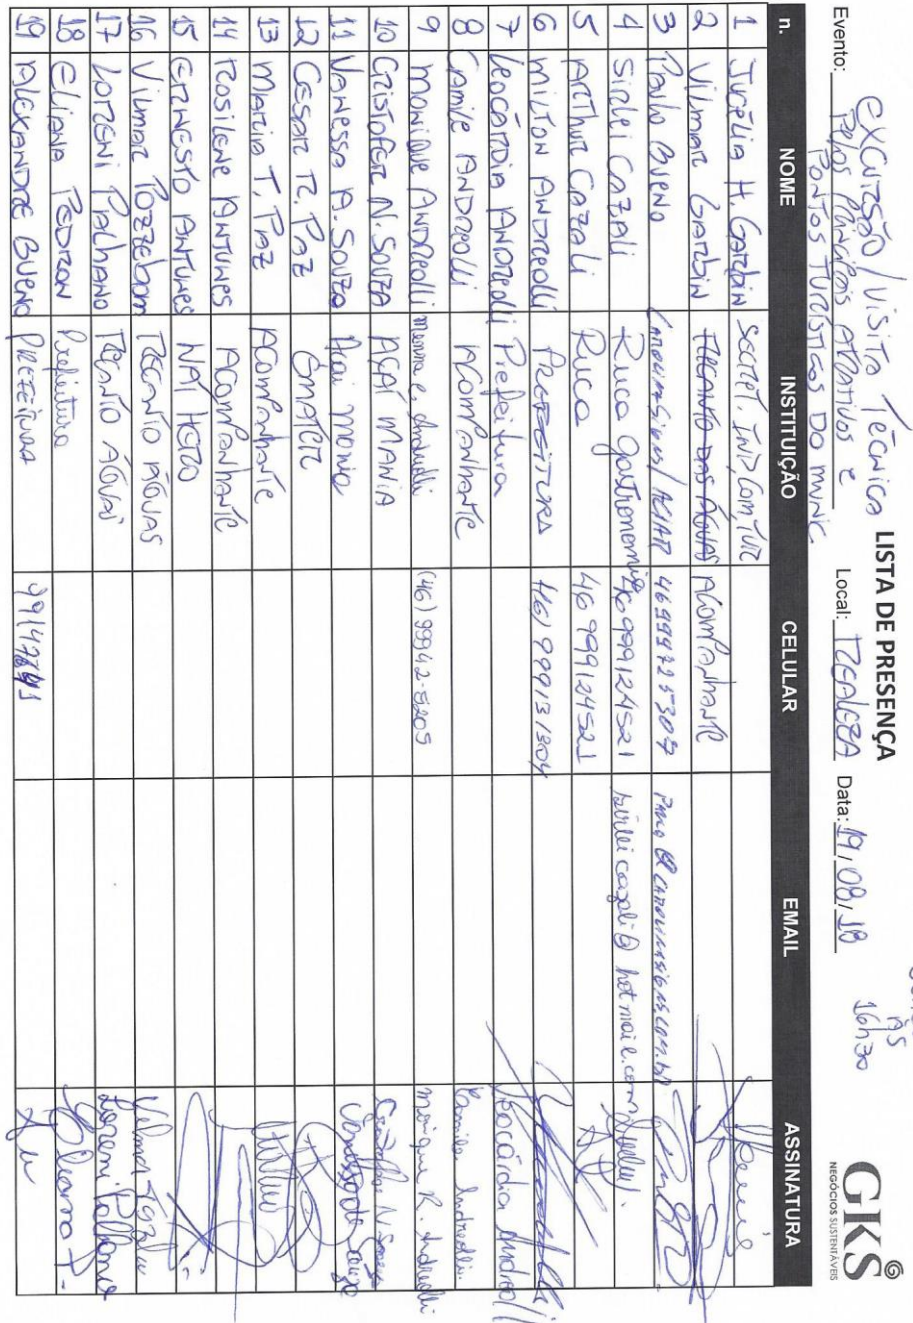 LISTA DE PRESENÇA
GKS
NEGÓCIOS SUSTENTÁVEIS
Evento: Excursão/Visita Técnica
Pelos Principais Atrativos e
Pontos Turísticos do munic.
Local: Realeza Data: 19/08/18
às
16h30
n. NOME INSTITUIÇÃO CELULAR EMAIL ASSINATURA
1 Jucélia H. Garbin Secret. Ind, Com, Tur
2 Vilmar Garbin Acompanhante
3 Paulo Bueno
4 Sirlei Cazali Ruca gastronomia 46 999124521 sirleicazali@hotmail.com
5 Arthur Cazali Ruca 46 999124521
6 Milton Andreolli Prefeitura (46) 999131804
7 Leocárdia Andreolli Prefeitura Leocárdia Andreolli
8 Camile Andreolli Acompanhante Camile Andreolli
9 Monique Andreolli (46) 99942-8205 Monique R. Andreolli
10 Cristofer N. Souza Açaí Mania Cristofer N. Souza
11 Vanessa A. Souza Açai Mania Vanessa de Souza
12 Cessar R. Paz Ematerr
13 Maria T. Paz Acompanhante
14 Rosilene Antunes Acompanhante
15 Ernesto Antunes
16 Vilmar Pozzebom Recanto Águas
17 Loreni Palhano Recanto Águas Loreni Palhano
18 Eliana Pedron Prefeitura Eliana P.
19 Alexandre Bueno Prefeitura